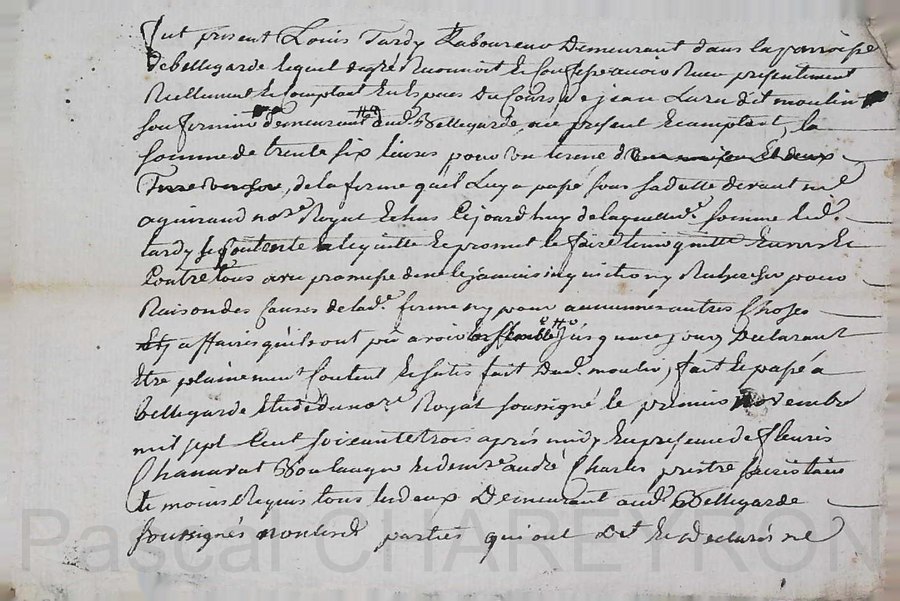 fut present Louis Tardy Laboureur Demeurant dans la parroisse
de bellegarde lequel degré Reconnoit et Confesse avoir Recu presentement
Reellement et Comptant en Especes Du Cours, de jean dit moulin
son fermier demeurant aud. Bellegarde, present Ecceptant, la
somme de trente six livres pour un terme
de la ferme qu'il Luy a passé sous sa datte devant me
aguiraud nore. Royal Echus Cejourd'huy de laquelle somme led.
tardy se Contente En quitte Et promet le faire tenir quitte Envers Et
Contre tous avec promesse de ne le jamais inquietter ny Rechercher pour
Raison des Causes de lad. ferme ny pour aucunnes autres Choses
affaires qu'ils ont pû avoir Ensemble jusqu'a ce jour, Declarant
Etre plainement Content Et satisfait Dud. moulin, fait Et passé a
bellegarde Etude du nore. Royal soussigné le premier Novembre
mil sept Cent soixante trois après midy En presence de fleuris
Chanavat Boulanger Et de mre. andré Charles prestre secretaire
témoins Requis tous les deux Demeurant aud. Bellegarde
soussignés non lesd. parties qui ont Dit Et Declarés ne
Pascal CHAREYRON